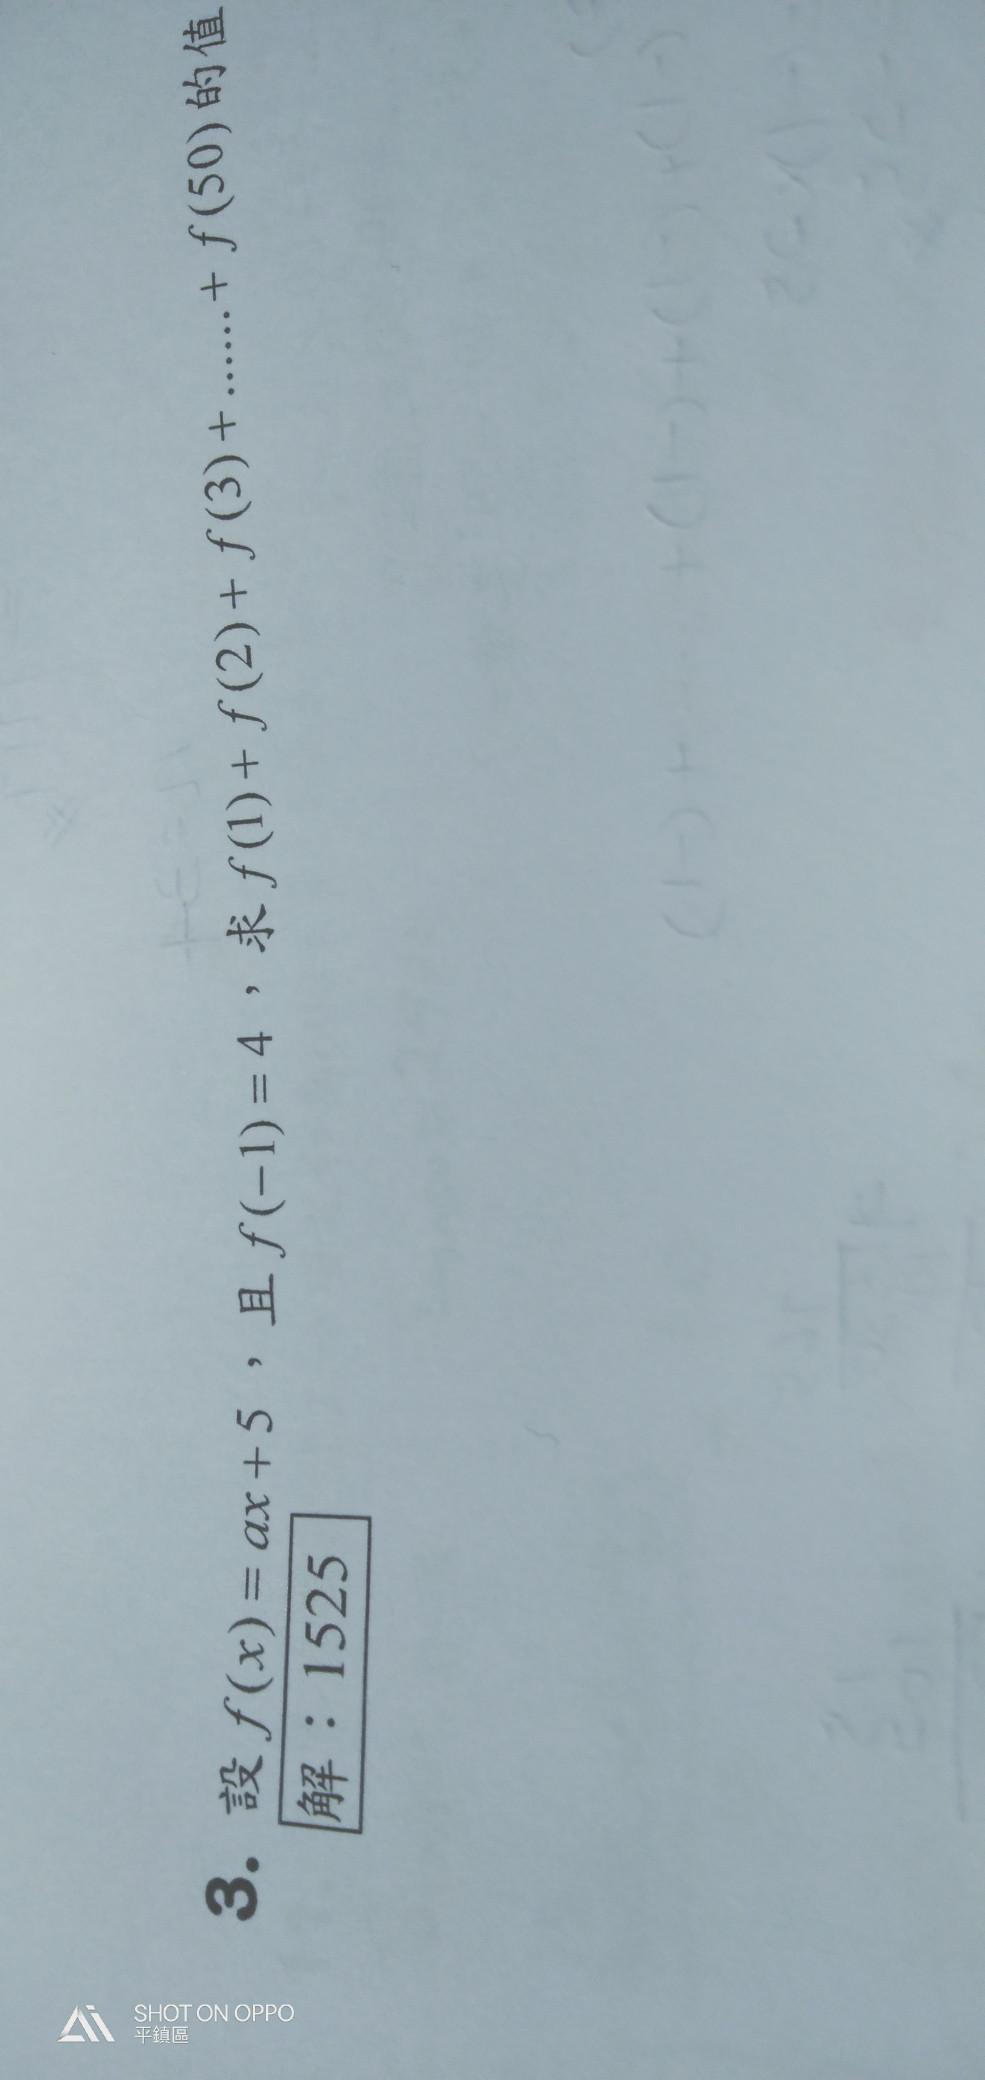 3. 設 f(x)=ax+5，且 f(-1)=4，求 f(1)+f(2)+f(3)+.......+f(50) 的值
解：1525
SHOT ON OPPO
平鎮區